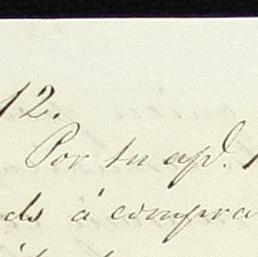 12.
Por tu apd.
ds á compra